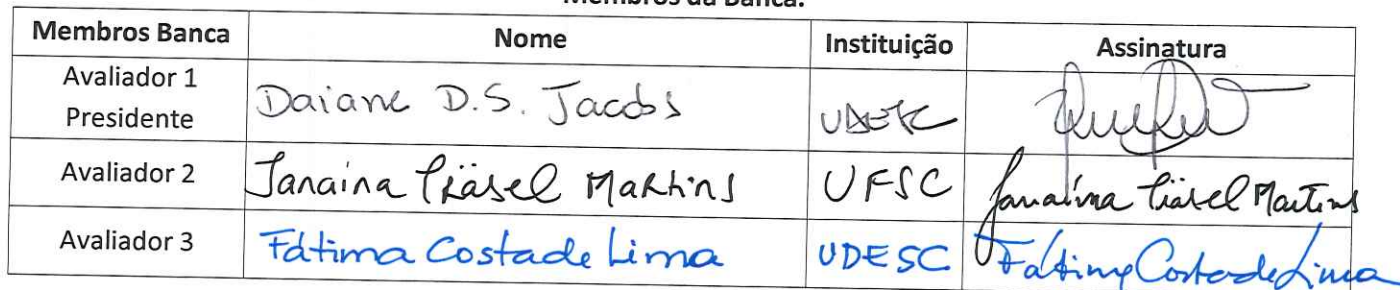 Membros da Banca:
Membros Banca Nome Instituição Assinatura
Avaliador 1
Presidente Daiane D.S. Jacobs UDESC
Avaliador 2 Janaina Träsel Martins UFSC Janaína Träsel Martins
Avaliador 3 Fátima Costa de Lima UDESC Fátima Costa de Lima